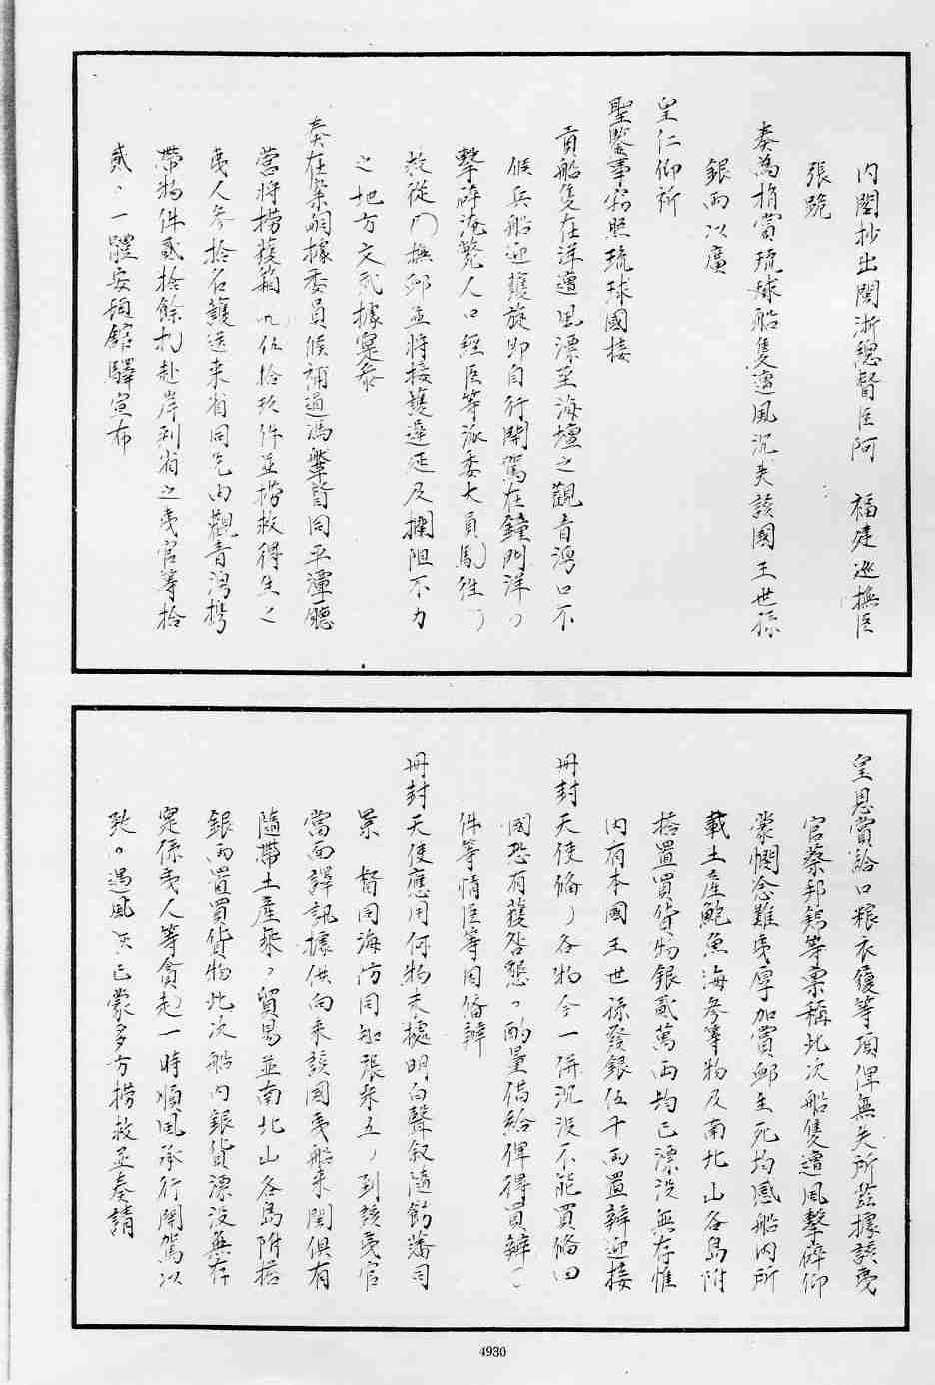 內閣抄出閩浙總督臣阿 福建巡撫臣
張跪
奏為捐賞琉球船隻遭風沉失該國王世孫
銀兩以廣
皇仁仰祈
聖鑒事竊照琉球國接
貢船隻在洋遭風漂至海壇之觀音澳口不
候兵船迎護旋即自行開駕在鐘門洋
擊碎淹斃人口經臣等派委大員馳往
撫卹並將接護遲延及攔阻不力
之地方文武據實參
奏在案嗣據委員候補通馮鞶督同平潭廳
營將撈獲箱 伍拾玖件並撈救得生之
夷人參拾名護送来省同先由觀音澳
帶物件貳拾餘 赴岸到省之夷官等拾
貳 一體安頓館驛宣布
皇恩賞給口糧衣履等項俾無失所茲據該夷
官蔡邦錦等稟稱此次船隻遭風擊碎仰
蒙憫念難夷厚加賞卹生死均感船內所
載土產鮑魚海參等物及南北山各島附
搭置買貨物銀貳萬兩均已漂没無存惟
內有本國王世孫發銀伍千兩置辦迎接
冊封天使備 各物全一併沉没不能買備回
國恐有獲咎懇 酌量借給俾得買辦
件等情臣等因備辦
冊封天使應用何物未據明白聲叙隨飭藩司
景 督同海防同知張采五 到該夷官
當面譯訊據供向来該國夷船来閩俱有
隨帶土產 貿易並南北山各島附搭
銀兩置買貨物此次船內銀貨漂没無存
寔係夷人等貪趕一時順風承行開駕以
致 遇風 已蒙多方撈救並奏請
4930